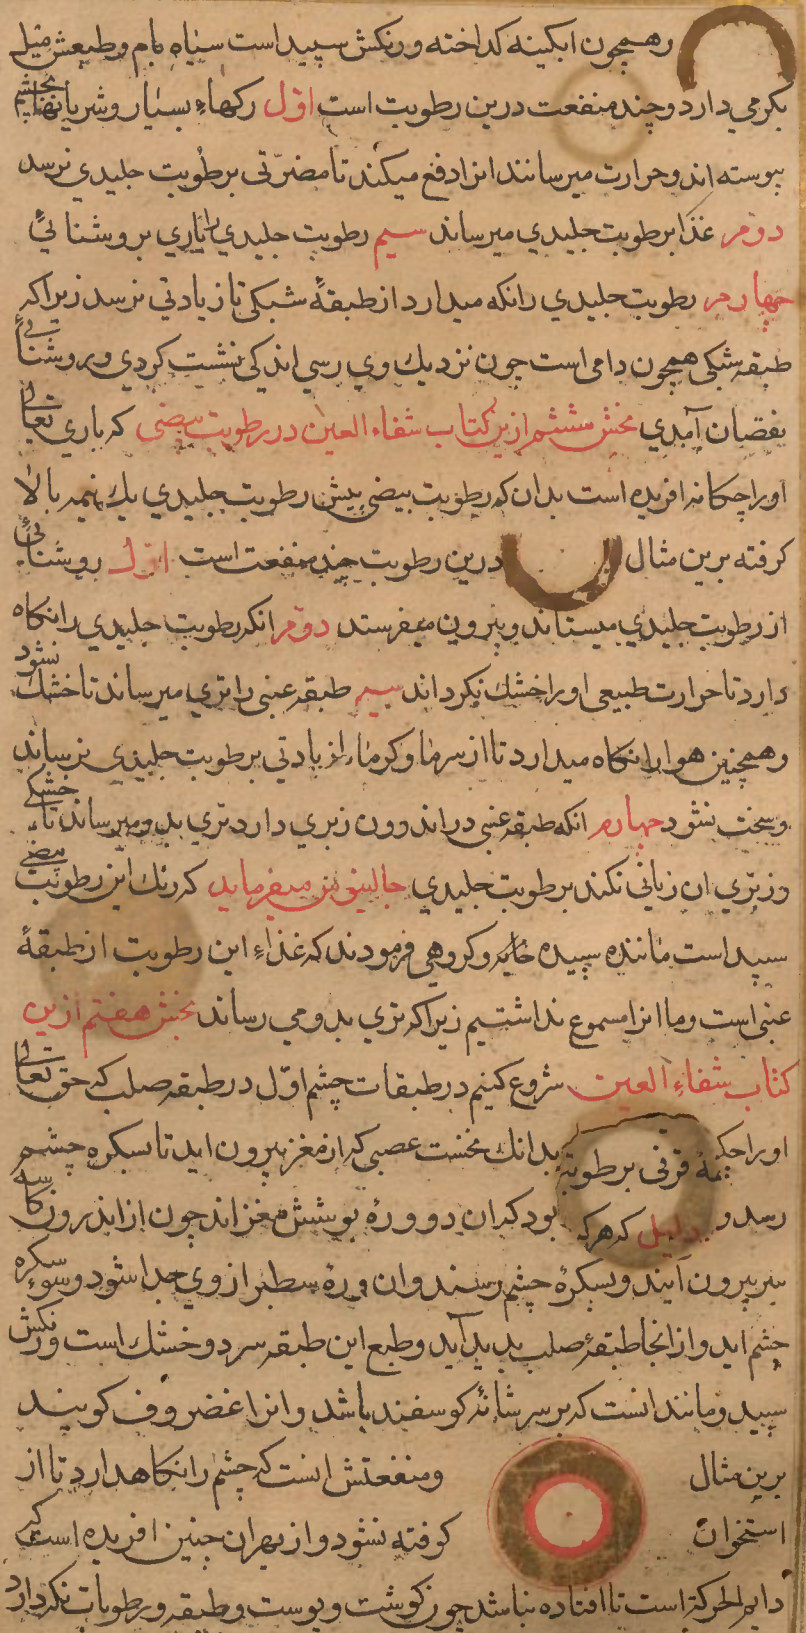 وهمچون ابکینه کداخته ورنکش سپید است سیاه بام وطبعش میل
بکرمی دارد وچند منفعت درین رطوبت است اوّل رکهاء بسیار وشریانها بچشم
پیوسته اند وحرارت میرسانند انرا دفع میکند تا مضرّتی برطوبت جلیدی نرسد
دوّم غذا برطوبت جلیدی میرساند سیم رطوبت جلیدی را یاری بروشنائی
چهارم رطوبت جلیدی را نکه میدارد از طبقهٔ شبکی تا زیادتی نرسد زیراکه
طبقه شبکی همچون دامی است چون نزدیك وی رسی اندکی نشست کردی وبروشنائی
نقصان آمدی بخش ششم ازین کتاب شفاء العین در رطوبت بیضی که باری تعالی
اورا چکانه افریده است بدان که رطوبت بیضی پیش رطوبت جلیدی یك نیمه بالا
کرفته برین مثال درین رطوبت چند منفعت است اوّل روشنائی
از رطوبت جلیدی میستاند وبیرون میفرستد دوّم انکه رطوبت جلیدی را نکاه
دارد تا حرارت طبیعی اورا خشك نکرداند سیم طبقه عنبی را تری میرساند تا خشك نشود
وهمچنین هوا را نکاه میدارد تا از سرما وکرماء از یادتی برطوبت جلیدی نرساند
وسخت نشود چهارم انکه طبقه عنبی در اندرون زبری دارد تری بدو میرساند تا خشکی
وزبری ان زیانی نکند برطوبت جلیدی جالینوس میفرماید که رنك این رطوبت بیضی
سپید است ماننده سپیده خایه وکروهی فرمودند که غذاء این رطوبت از طبقهٔ
عنبی است وما انرا مسموع نداشتیم زیراکه تری بدو می رساند بخش هفتم ازین
کتاب شفاء العین شروع کنیم در طبقات چشم اوّل در طبقه صلب که حق تعالی
اورا چکـ مهٔ قرنی برطوبة بدانك نخست عصبی که از مغز بیرون اید تا بسکره چشم
رسد و دلیل که هرکه بود که ان دو ورهٔ پوشش مغز اند چون از اندرون کاسه
سر بیرون آیند وبسکرهٔ چشم رسند وان ورهٔ سطبر از وی جدا شود وسوء سکره
چشم اید واز انجا طبقهٔ صلب بدید آید وطبع این طبقه سرد وخشك است ورنکش
سپید ومانند انست که بر سر شانهٔ کوسفند باشد وانرا غضروف کویند
برین مثال ومنفعتش انست که چشم را نکاهدارد تا از
استخوان کوفته نشود واز بهر ان چنین افریده است که
دایم الحرکة است تا افتاده نباشد چون کوشت وپوست وطبقه ورطوبات نکردارد